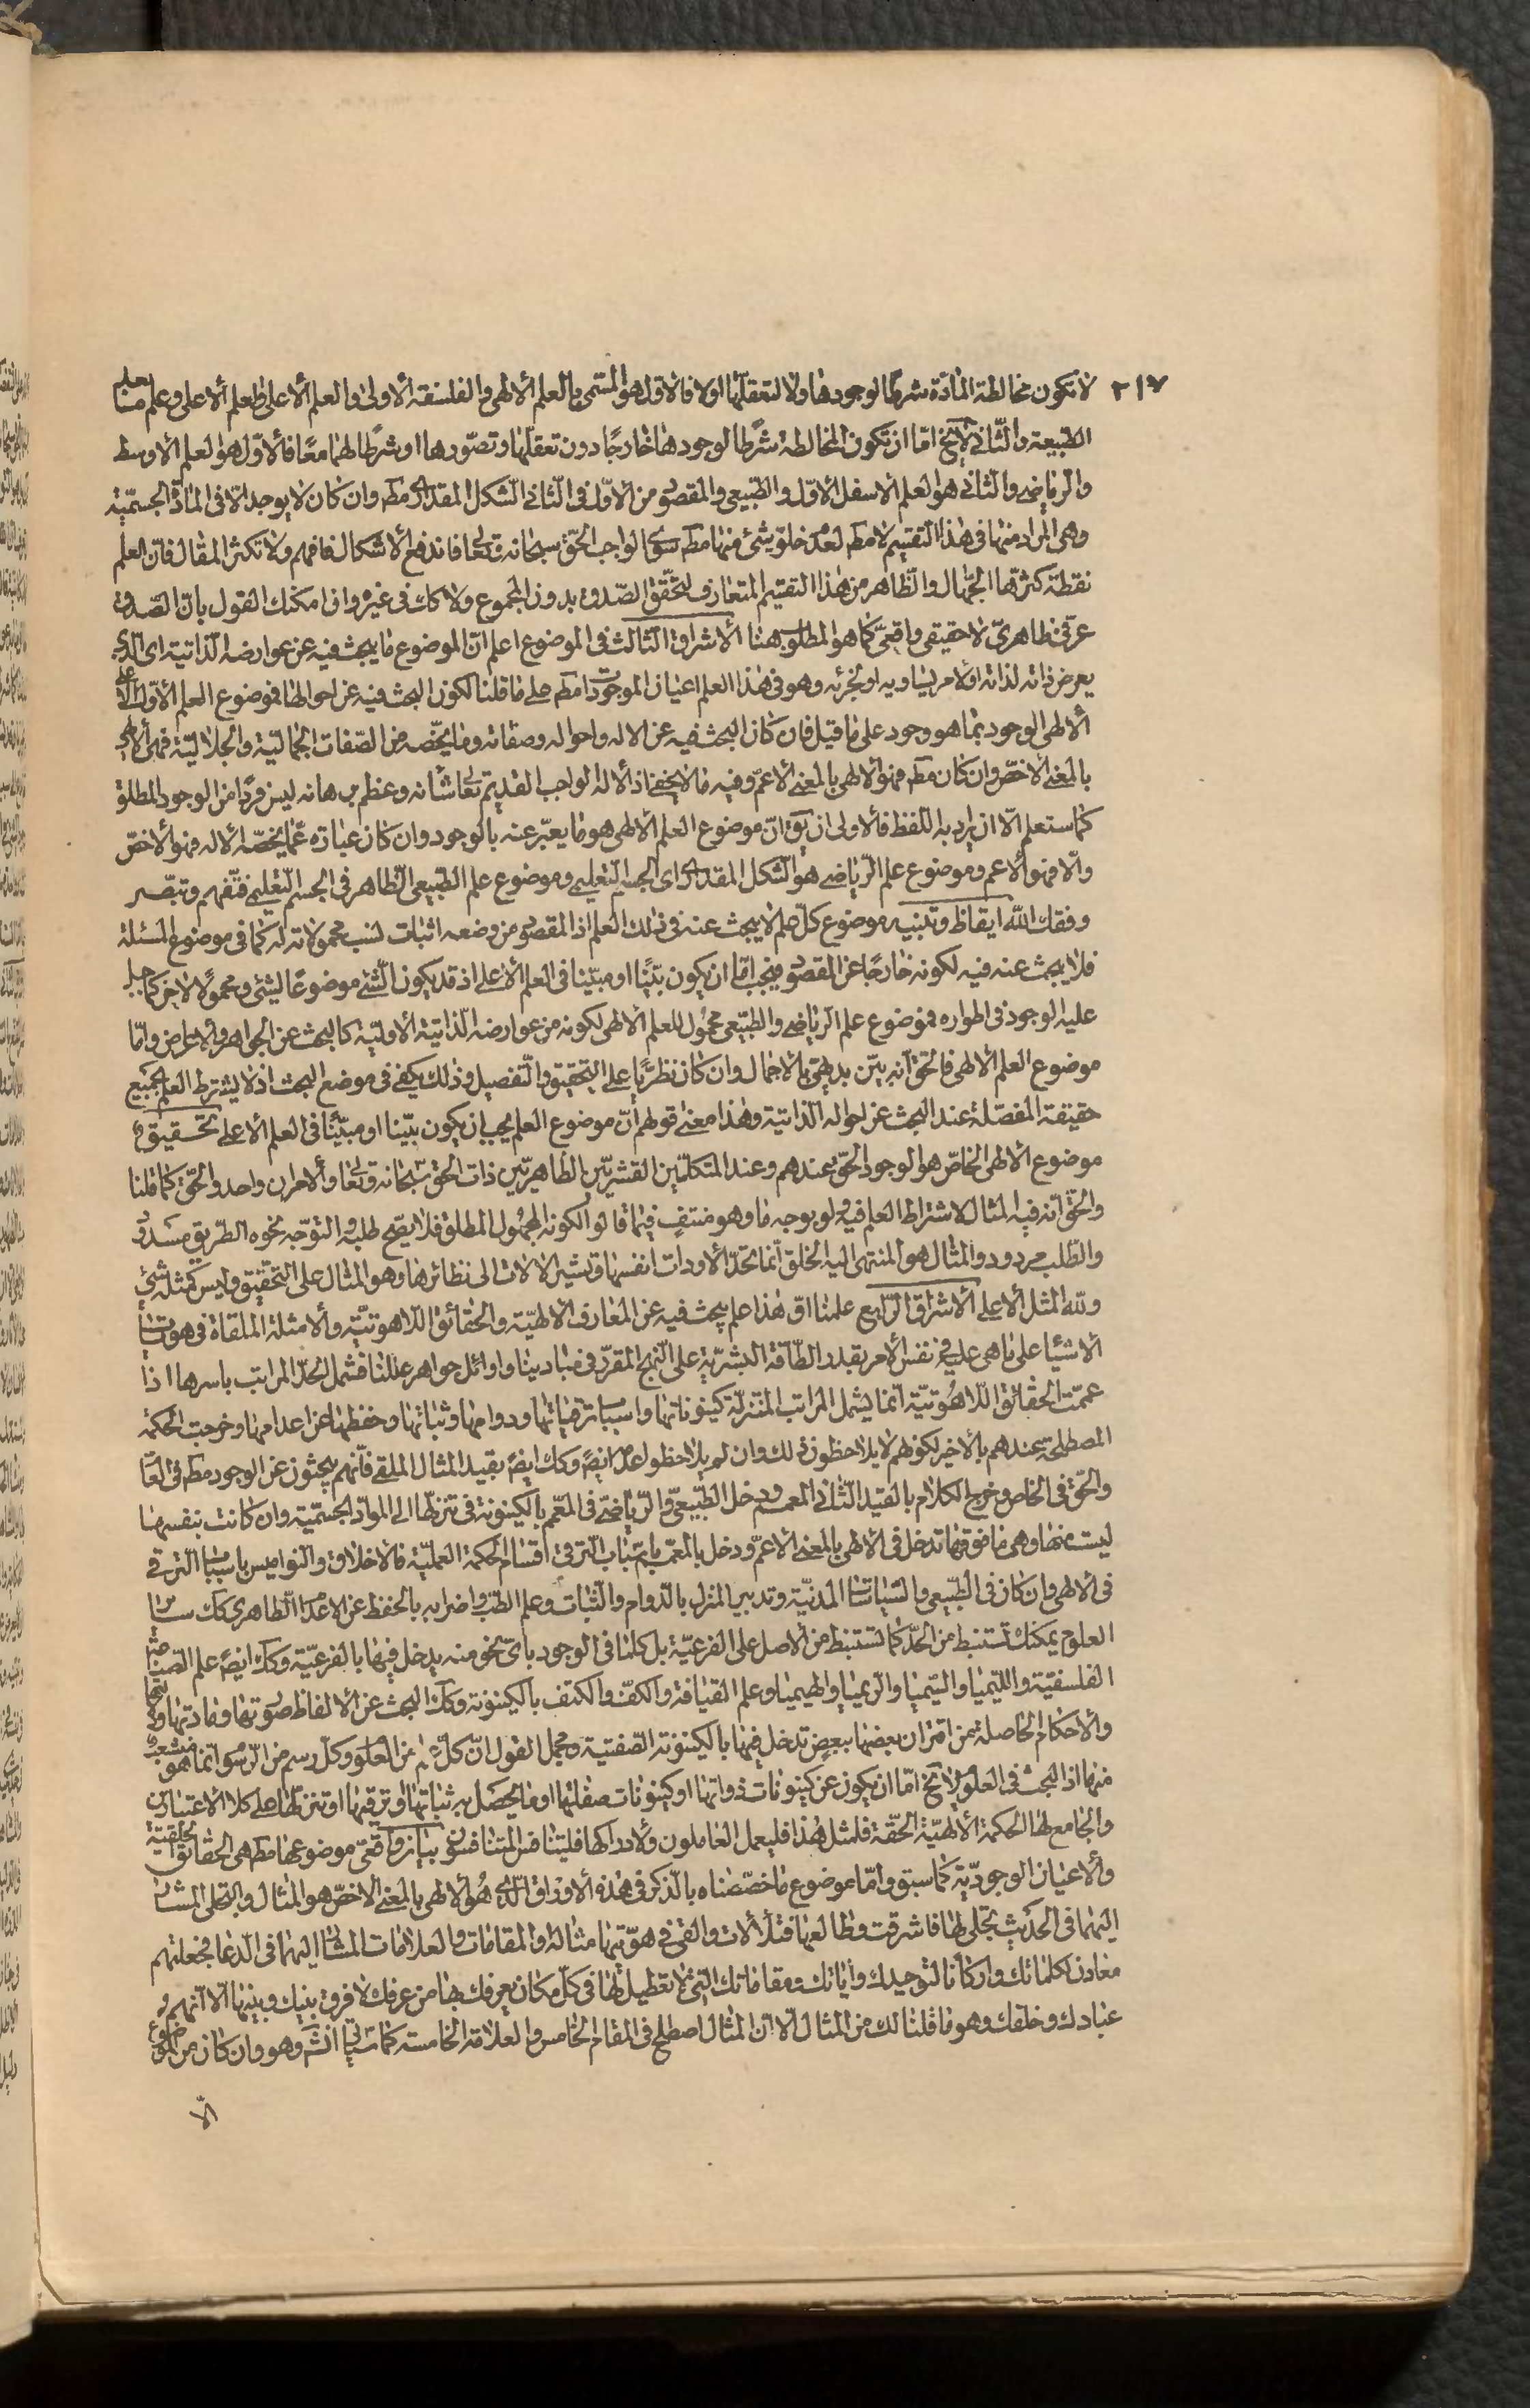 ٢١٧
لا تكون مخالطة المادّة شرطا لوجودها ولا لتعقلها اولا فالاول هو المسمى بالعلم الالهى والفلسفة الاولى والعلم الاعلى وعلم
الطبيعة والثانى لايخ امّا ان تكون المخالطة شرطا لوجودها خارجًا دون تعقلها وتصوّرها او شرطا لهما معًا فالاوّل هو العلم الاوسط
والرياضى والثانى هو العلم الاسفل الاوّل والطبيعى والمقصود من الاوّل فى الثانى الشكل المقدارى مطه وان كان لا يوجد الّا فى المادّة الجسميّة
وهى المراد منها فى هذا التقسيم لا مطه لعدم خلوّ شىء منها مطه سوى الواجب الحقّ سبحانه وتعالى فاندفع الاشكال فافهم ولا تكثر المقال فان العلم
نقطة كثرّها الجهال والظاهر من هذا التقسيم المتعارف لتحقّق الصّدق بدون المجموع ولا كك فى غيره وان امكنك القول بان الصدق
عرفى ظاهرىّ لا حقيقى واقعىّ كما هو المطلوب هنا الاشراق الثالث فى الموضوع اعلم انّ الموضوع ما يبحث فيه عن عوارضه الذاتية اى الذى
يعرض ذاته لذاته او لامر يساويه او لجزئه وهو فى هذا العلم اعيان الموجودات مطه على ما قلنا لكون البحث فيه عن احوالها فموضوع العلم الاوّل
الالهى الوجود بما هو وجود على ما قيل فان كان البحث فيه عن الاله واحواله وصفاته وما يخصّه من الصّفات الجمالية والجلاليّة فهى الالهى
بالمعنى الاخصّ وان كان مطه فهو الالهى بالمعنى الاعمّ وفيه ما لا يخفى اذ الاله الواجب القديم تعالى شأنه وعظم برهانه ليس فردًا من الوجود المطلق
كما ستعلم الّا ان يراد به اللفظ فالاولى ان يقان موضوع العلم الالهى هو ما يعبّر عنه بالوجود وان كان عبارة عمّا يخصّه الاله فهو الاخصّ
والّا فهو الاعم وموضوع علم الرياضى هو الشكل المقدارى اى الجسم التعليمى وموضوع علم الطبيعى الظاهر فى الجسم التعليمى فتفهم وتبصّر
وفقك الله ايقاظ وتنبيه موضوع كلّ علم لا يبحث عنه فى ذلك العلم اذ المقصود من وضعه اثبات نسب محمولاته له كما فى موضوع المسئلة
فلا يبحث عنه فيه لكونه خارجًا عن المقصود فيجب امّا ان يكون بيّنًا او مبيّنا فى العلم الاعلى اذ قد يكون الشىء موضوعًا لشىء ومحمولًا لاخر كما
عليه الوجود فى اطواره فموضوع علم الرياضى والطبيعى محمول للعلم الالهى لكونه من عوارضه الذاتية الاولية كالبحث عن الجواهر والاعراض وامّا
موضوع العلم الالهى فالحقّ انه بيّن بديهىّ بالاجمال وان كان نظريًا على التحقيق والتفصيل وذلك يكفى فى موضع البحث اذ لا يشترط العلم بجميع
حقيقة المفصّلة عند البحث عن احواله الذاتية وهذا معنى قولهم انّ موضوع العلم يجب ان يكون بيّنا او مبيّنًا فى العلم الاعلى تحقيق
موضوع الالهى الخاصّ هو الوجود الحقّ عندهم وعند المتكلّمين القشريّين الظاهريّين ذات الحق سبحانه وتعالى والامران واحد والحقّ كما قلنا
والحقّ انه فيه المثال لاشتراط العلم فيه ولو بوجه ما وهو منتفٍ فيما قالوا لكونه المجهول المطلق فلا يصحّ طلبه والتوجّه نحوه الطريق مسدود
والطّلب مردود والمثال هو المنتهى اليه الخلق انما تحدّ الادوات انفسها وتشير الالات الى نظائرها وهو المثال على التحقيق وليس كمثله شىء
ولله المثل الاعلى الاشراق الرّابع علمنا انّ هذا علم يبحث فيه عن المعارف الالهيّة والحقائق اللاهوتيّة والامثلة الملقاة فى هويّات
الاشياء على ما هى عليه فى نفس الامر بقدر الطاقة البشريّة على النهج المقرّر فى مباديها واوائل جواهر عللنا فشمل الحدّ المراتب باسرها اذا
عمّمت الحقائق اللّاهوتيّة انما يشمل المراتب المتنزلة كينوناتها واسباب ترقياتها ودوامها وثباتها وحفظها عن اعدامها وخرجت الحكمة
المصطلحة عندهم بالاخير لكونهم لا يلاحظون ذلك وان لم يلاحظوا عدمه ايضًا وكك ايضًا بقيد المثال الملقى فانّهم يبحثون عن الوجود مطه فى العام
والحقّ فى الخاص وخرج الكلام بالقيد الثانى المعمم ودخل الطبيعىّ والرياضىّ فى المعمّم بالكينونة فى تنزّلها الى الموادّ الجسميّة وان كانت بنفسها
ليست منها وهى ما فوقها تدخل فى الالهى بالمعنى الاعمّ ودخل بالمعمّ باسباب الترقى اقسام الحكمة العمليّة فالاخلاق والنواميس باسباب الترقى
فى الالهى وان كان فى الطبيعى والسياسات المدنيّة وتدبير المنزل بالدوام والثبات وعلم الطب واضرابه بالحفظ عن الاعدام الظاهرى كك ساير
العلوم يمكنك تستنبط من الحدّ كما تستنبط من الاصل على الفرعيّة بل كلما فى الوجود باىّ نحو منه يدخل فيها بالفرعيّة وكك ايضًا علم الصناعة
الفلسفيّة والليميا والسّيميا والريميا والهيميا وعلم القيافة والكف والكتف بالكينونة وكك البحث عن الالفاظ صورتها ومادتها
والاحكام الحاصلة من اقتران بعضها ببعض تدخل فيها بالكينونة الصّفتية ومجمل القول انّ كلّ علم من العلوم وكلّ رسم من الرّسوم انما هو منشعب
منها اذ البحث فى العلوم لايخ امّا ان يكون عن كينونات ذواتها او كينونات صفاتها او ما يحصل به ثباتها او ترقيها او تنزلها على كلا الاعتبارين
والجامع لها الحكمة الالهيّة الحقّة فلمثل هذا فليعمل العاملون ولادراكها فليتنافس المتنافسون بيان واقعى موضوعها مطه هى الحقائق الخلقيّة
والاعيان الوجوديّة كما سبق وامّا موضوع ما خصّصناه بالذكر فى هذه الاوراق الذى هو الالهى بالمعنى الاخصّ هو المثال والتجلى المشار
اليهما فى الحديث تجلى لها فاشرقت وطالعها فتلألأت والقى فى هويّتها مثاله والمقامات والعلامات المشار اليهما فى الدعا فجعلتهم
معادن لكلماتك واركانا لتوحيدك وآياتك ومقاماتك التى لا تعطيل لها فى كلّ مكان يعرفك بها من عرفك لا فرق بينك وبينها الّا انّهم
عبادك وخلقك وهو ما قلنا لك من المثال الّا ان المثال اصطلح فى المقام الخامس والعلامة الخامسة كما ياتى انشه وهو وان كان من
الّا